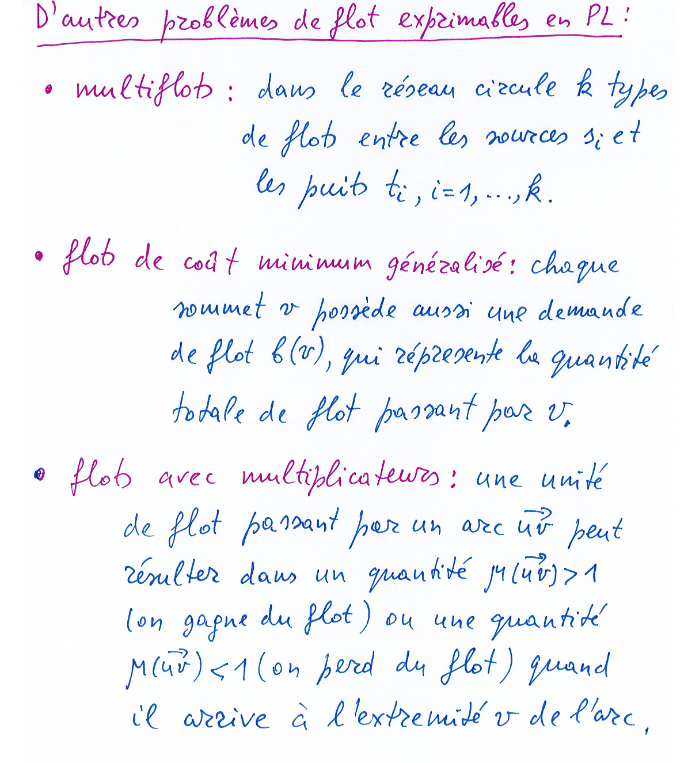 D'autres problèmes de flot exprimables en PL :
• multiflots : dans le réseau circule k types
de flots entre les sources si et
les puits ti, i=1, ..., k.
• flots de coût minimum généralisé : chaque
sommet v possède aussi une demande
de flot b(v), qui réprésente la quantité
totale de flot passant par v.
• flots avec multiplicateurs : une unité
de flot passant par un arc uv⃗ peut
résulter dans un quantité μ(uv⃗)>1
(on gagne du flot) ou une quantité
μ(uv⃗)<1 (on perd du flot) quand
il arrive à l'extremité v de l'arc.